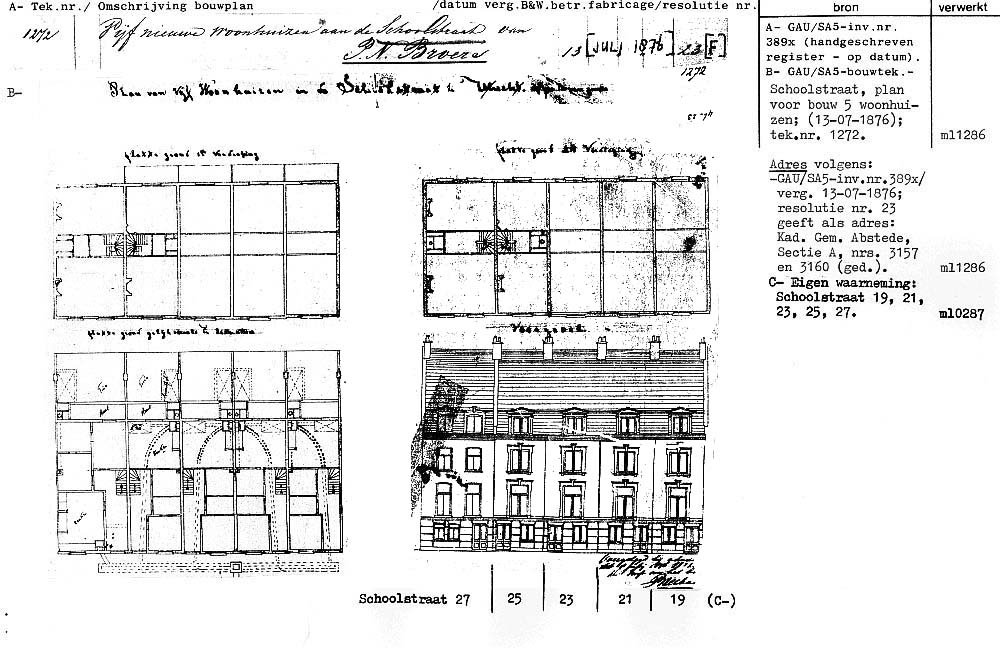 A- Tek.nr./ Omschrijving bouwplan /datum verg.B&W.betr.fabricage/resolutie nr.
bron
verwerkt
1272 Vijf nieuwe woonhuizen aan de Schoolstraat van
P.N. Broers
13 [JULI 1876] 23 [F]
1272
B-
Plan van Vijf Woonhuizen in de Schoolstraat te Utrecht
plattegrond 1e Verdieping
plattegrond 2e Verdieping
Voorgevel
A- GAU/SA5-inv.nr.
389x (handgeschreven
register - op datum).
B- GAU/SA5-bouwtek.-
Schoolstraat, plan
voor bouw 5 woonhui-
zen; (13-07-1876);
tek.nr. 1272.
ml1286
Adres volgens:
-GAU/SA5-inv.nr.389x/
verg. 13-07-1876;
resolutie nr. 23
geeft als adres:
Kad. Gem. Abstede,
Sectie A, nrs. 3157
en 3160 (ged.).
ml1286
C- Eigen waarneming:
Schoolstraat 19, 21,
23, 25, 27.
ml0287
Schoolstraat 27 25 23 21 19 (C-)